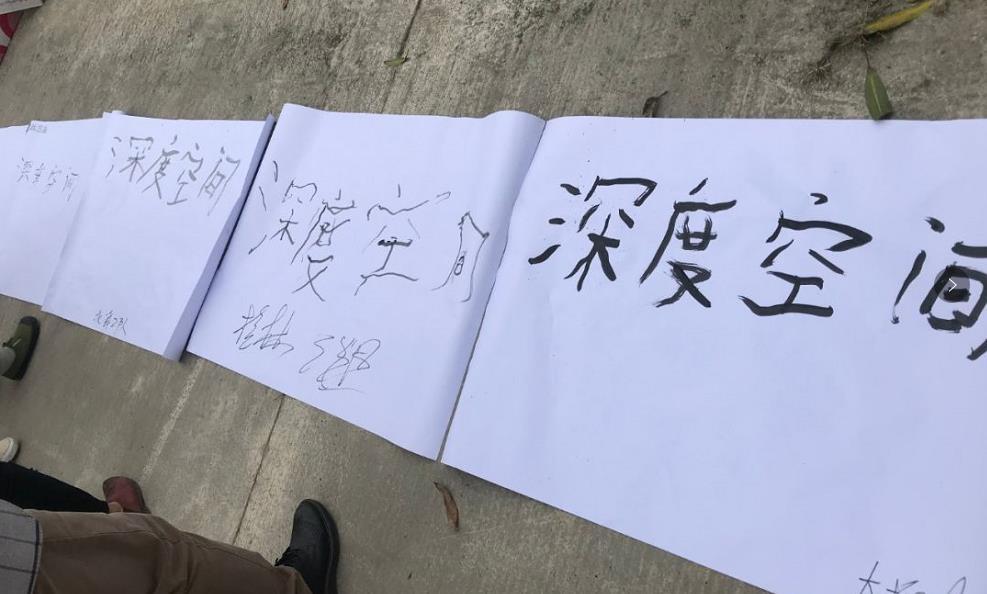 深度空间
深度空间
深度空间
深度空间